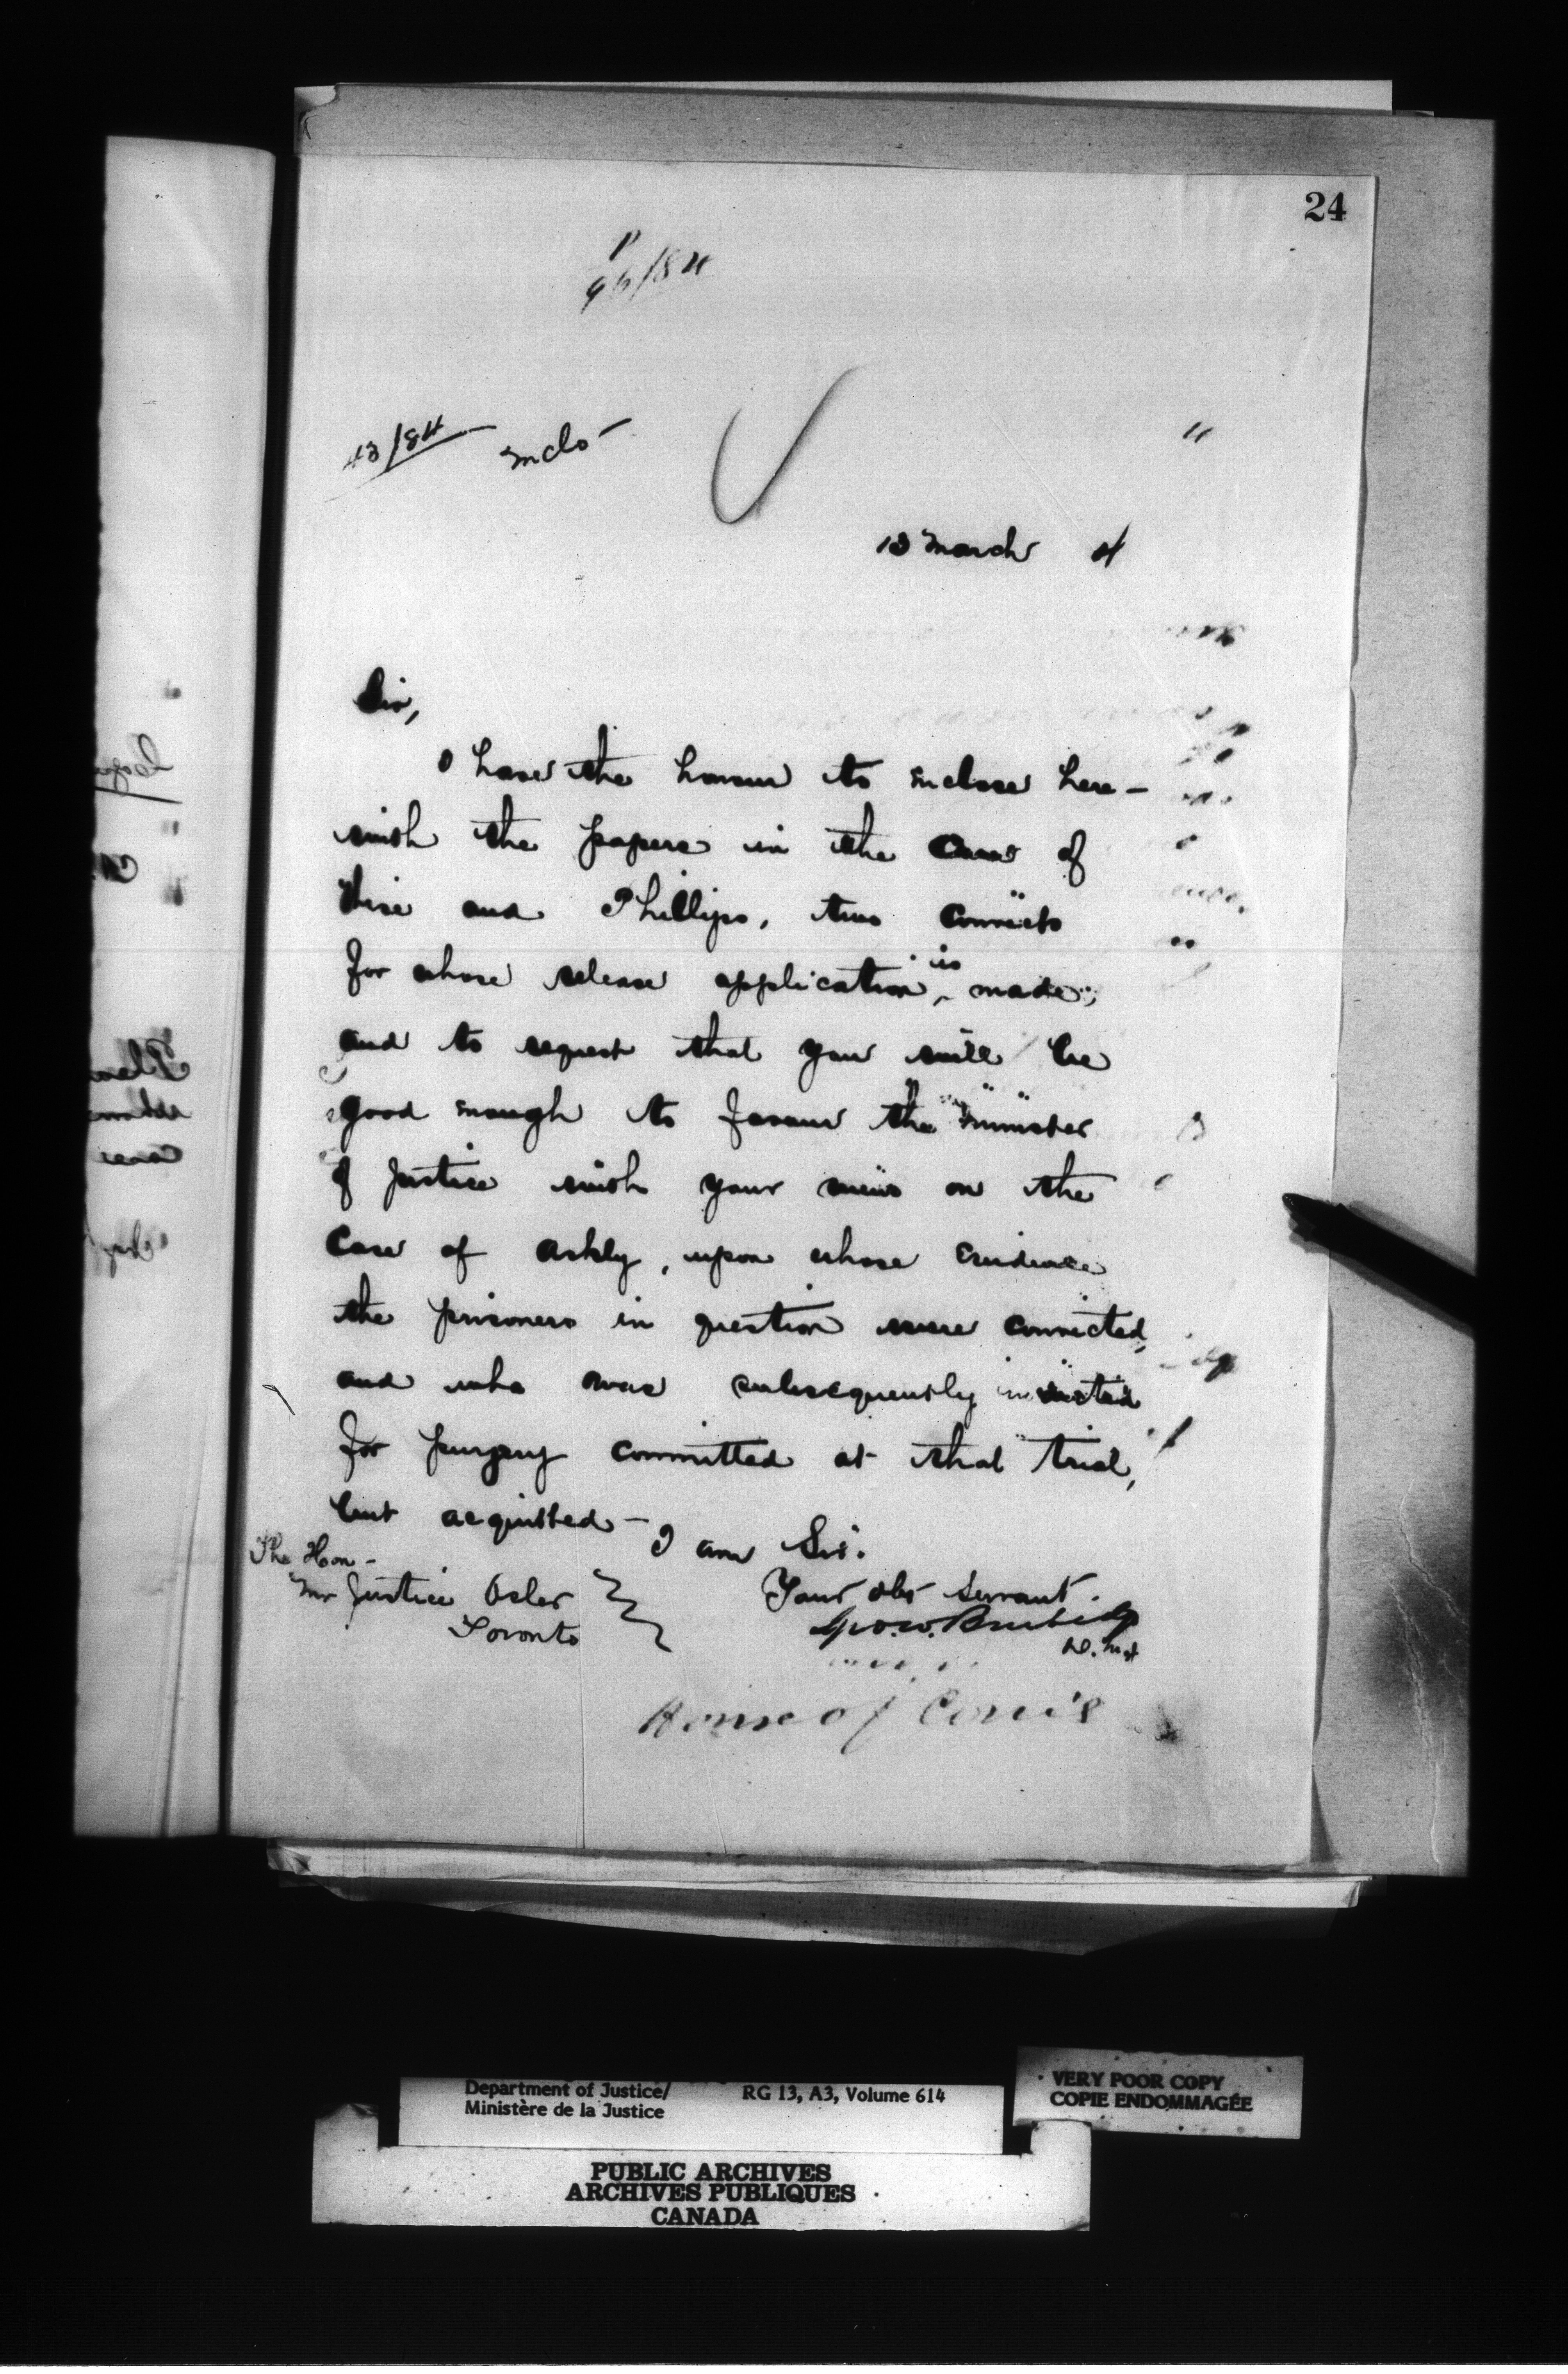 24
P
96/84
43/84 Inclo-
13 March 4
Sir,
I have the honour to inclose here-
with the papers in the case of
and Phillips, two convicts
for whose release application is made;
and to request that you will be
good enough to favour the Minister
of Justice with your views on the
case of Ashly, upon whose evidence
the prisoners in question were convicted,
and who was subsequently indicted
for perjury committed at that trial,
but acquitted-
I am Sir.
Your obt servant.
Geo. W. Burbidge
D. M. J.
The Hon-
Mr Justice Osler
Toronto
House of
Department of Justice/ RG 13, A3, Volume 614
Ministère de la Justice
VERY POOR COPY
COPIE ENDOMMAGÉE
PUBLIC ARCHIVES
ARCHIVES PUBLIQUES
CANADA